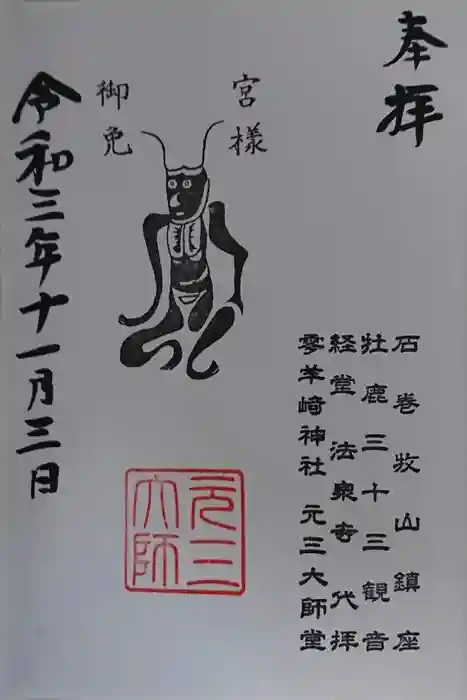 奉拝
宮様
御免
石巻牧山鎮座
牡鹿三十三観音
経堂 法泉寺 代拝
零羊崎神社 元三大師堂
元三大師
令和三年十一月三日